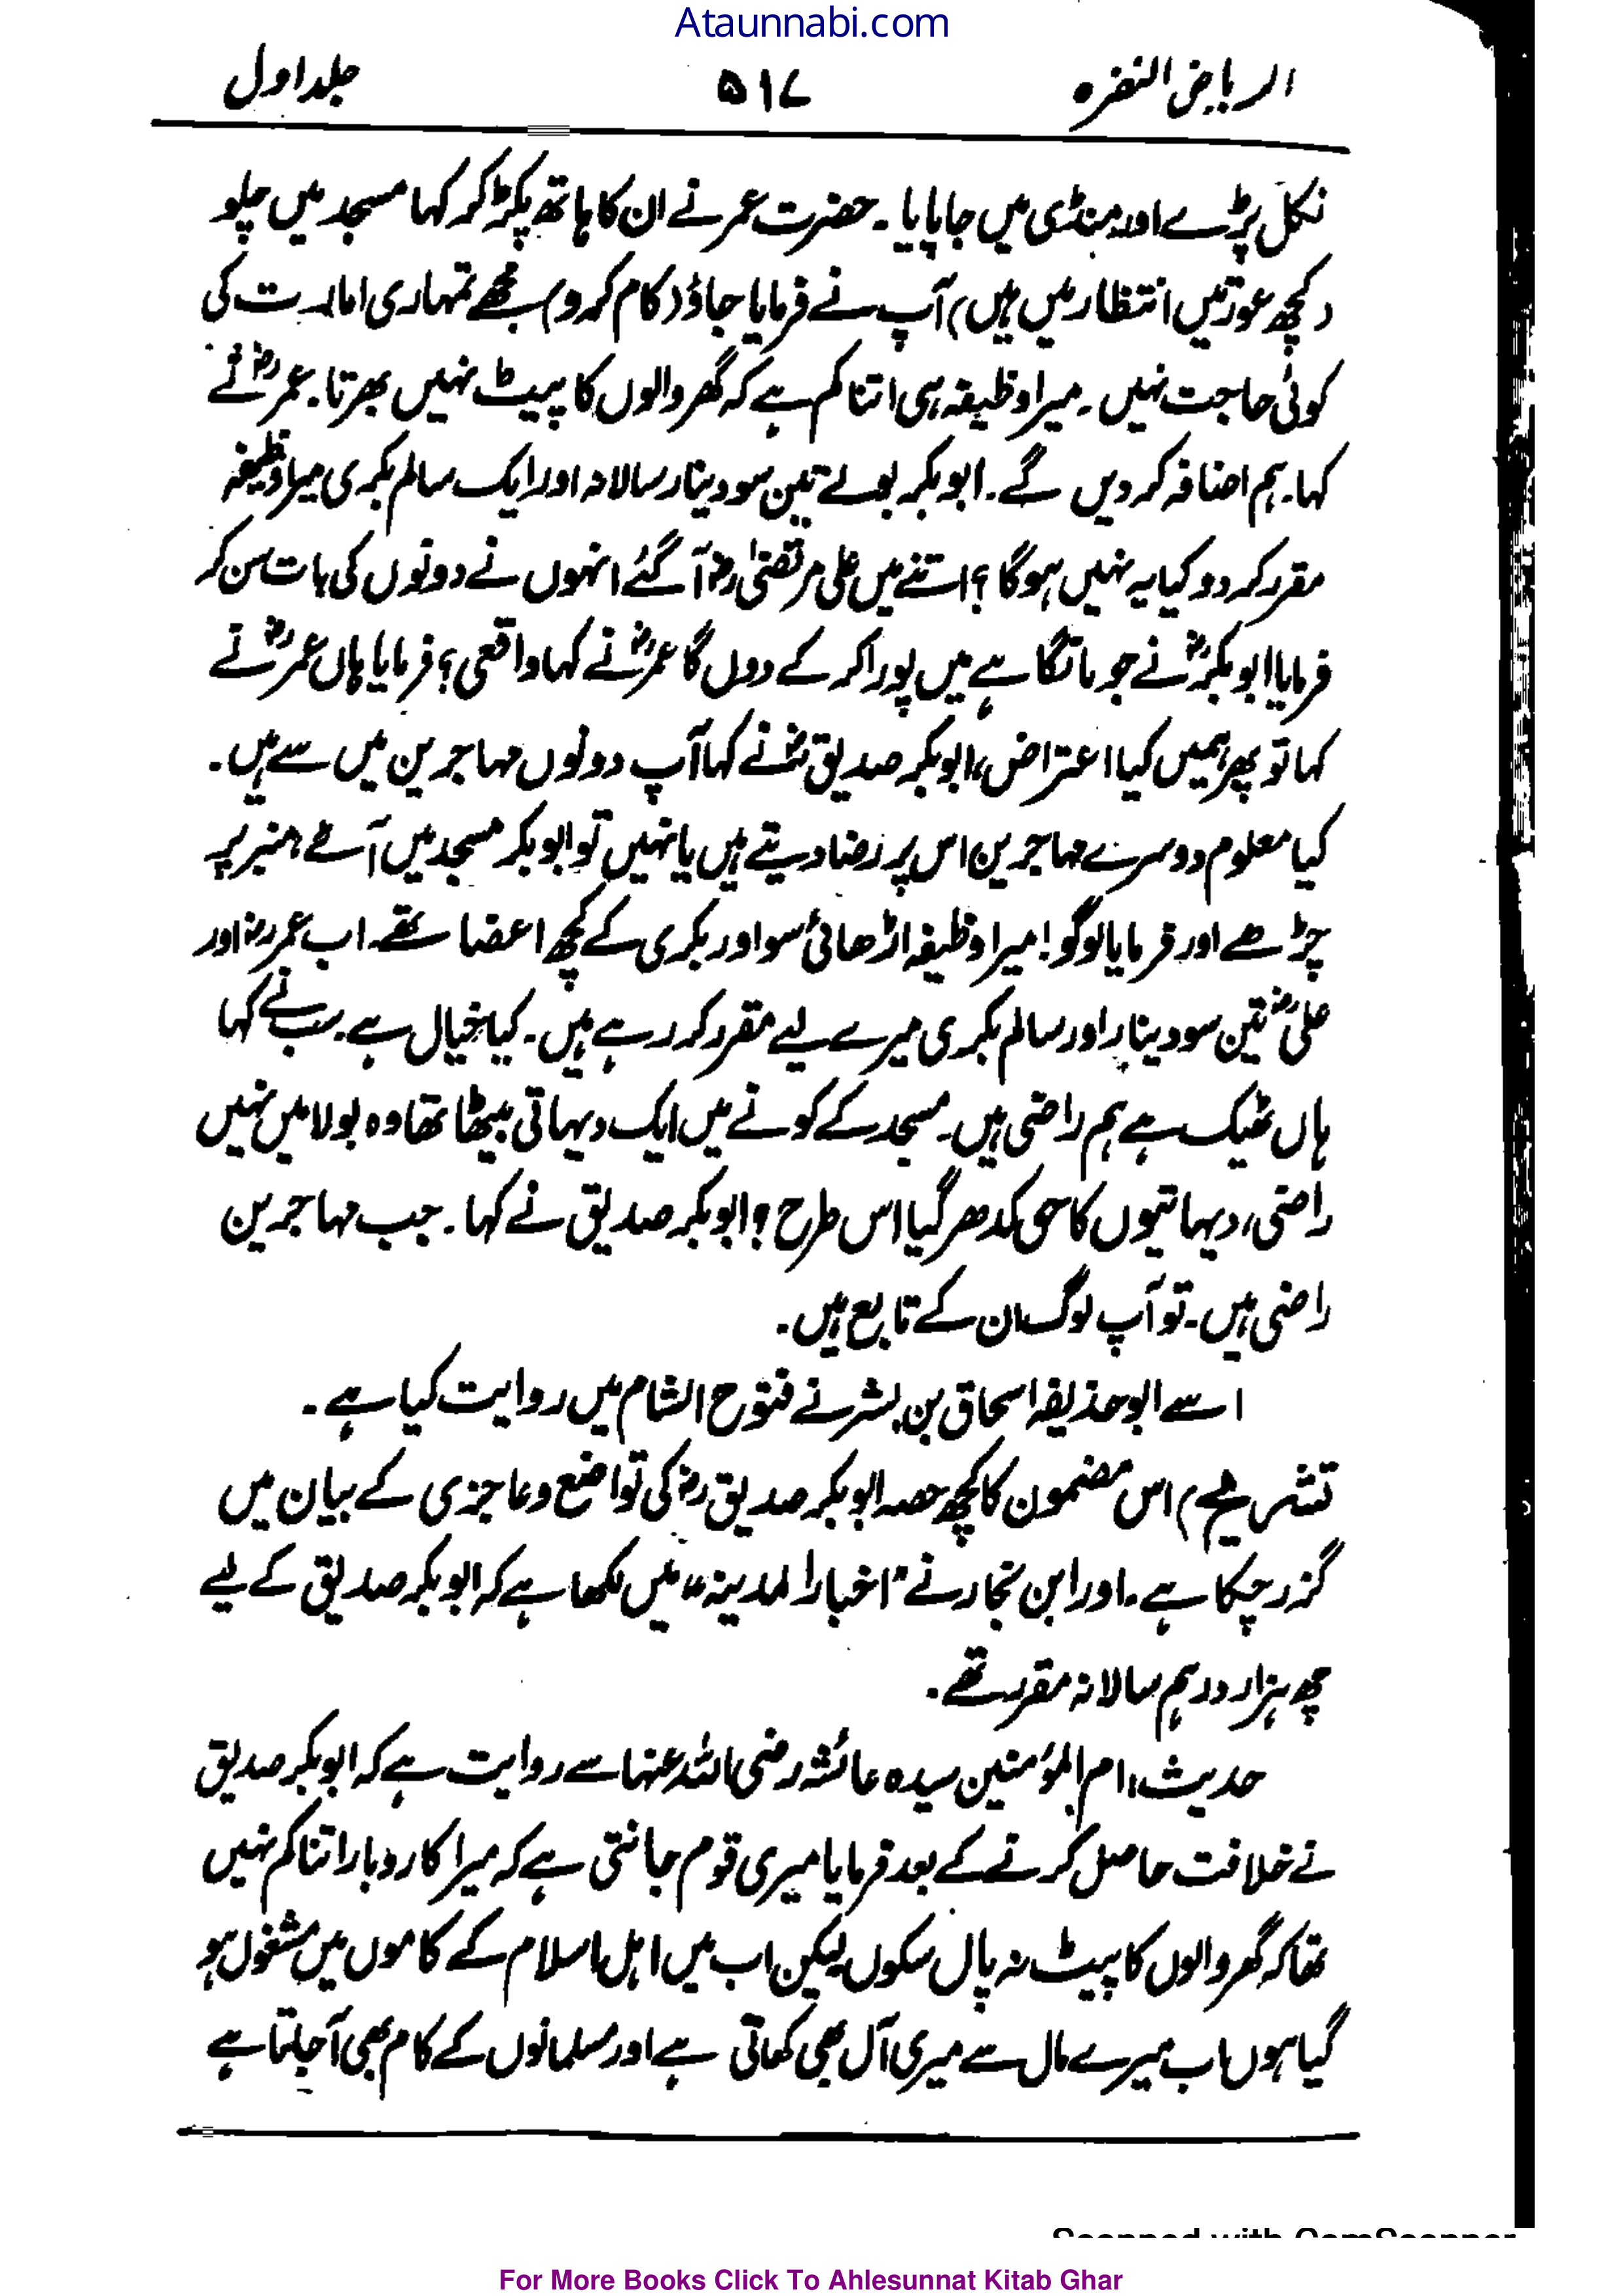 Ataunnabi.com
الریاض النضرہ ۵۱۷ جلد اول
نکل پڑے اور منڈی میں جا پایا ۔ حضرت عمر نے ان کا ہاتھ پکڑ کر کہا مسجد میں چلو
(کچھ عورتیں انتظار میں ہیں) آپ نے فرمایا جاؤ (کام کرو) مجھے تمہاری امارت کی
کوئی حاجت نہیں ۔ میرا وظیفہ ہی اتنا کم ہے کہ گھر والوں کا پیٹ نہیں بھرتا ۔ عمرؓ نے
کہا ۔ ہم اضافہ کر دیں گے ۔ ابوبکر بولے تین سو دینار سالانہ اور ایک سالم بکری میرا وظیفہ
مقرر کر دو کیا یہ نہیں ہوگا ؟ اتنے میں علی مرتضیٰؓ آ گئے انہوں نے دونوں کی بات سن کر
فرمایا ابوبکرؓ نے جو مانگا ہے میں پورا کر کے دوں گا عمرؓ نے کہا واقعی ؟ فرمایا ہاں عمرؓ نے
کہا تو پھر ہمیں کیا اعتراض، ابوبکر صدیقؓ نے کہا آپ دونوں مہاجرین میں سے ہیں ۔
کیا معلوم دوسرے مہاجرین اس پر رضا دیتے ہیں یا نہیں تو ابوبکر مسجد میں آئے منبر پر
چڑھے اور فرمایا لوگو ! میرا وظیفہ اڑھائی سو اور بکری کے کچھ اعضا تھے ۔ اب عمرؓ اور
علیؓ تین سو دینار اور سالم بکری میرے لیے مقرر کر رہے ہیں ۔ کیا خیال ہے ۔ سب نے کہا
ہاں ٹھیک ہے ہم راضی ہیں ۔ مسجد کے کونے میں ایک دیہاتی بیٹھا تھا وہ بولا میں نہیں
راضی، دیہاتیوں کا حق کدھر گیا اس طرح ؟ ابوبکر صدیق نے کہا ۔ جب مہاجرین
راضی ہیں ۔ تو آپ لوگ ان کے تابع ہیں ۔
اسے ابوحذیفہ اسحاق بن بشر نے فتوح الشام میں روایت کیا ہے ۔
تشریح) اس مضمون کا کچھ حصہ ابوبکر صدیقؓ کی تواضع و عاجزی کے بیان میں
گزر چکا ہے ۔ اور ابن نجار نے "اخبار المدینہ" میں لکھا ہے کہ ابوبکر صدیق کے لیے
چھ ہزار درہم سالانہ مقرر تھے ۔
حدیث، ام المؤمنین سیدہ عائشہ رضی اللہ عنہا سے روایت ہے کہ ابوبکر صدیق
نے خلافت حاصل کرنے کے بعد فرمایا میری قوم جانتی ہے کہ میرا کاروبار اتنا کم نہیں
تھا کہ گھر والوں کا پیٹ نہ پال سکوں لیکن اب میں اہل اسلام کے کاموں میں مشغول ہو
گیا ہوں اب میرے مال سے میری آل بھی کھاتی ہے اور مسلمانوں کے کام بھی آ جاتا ہے
Scanned with CamScanner
For More Books Click To Ahlesunnat Kitab Ghar